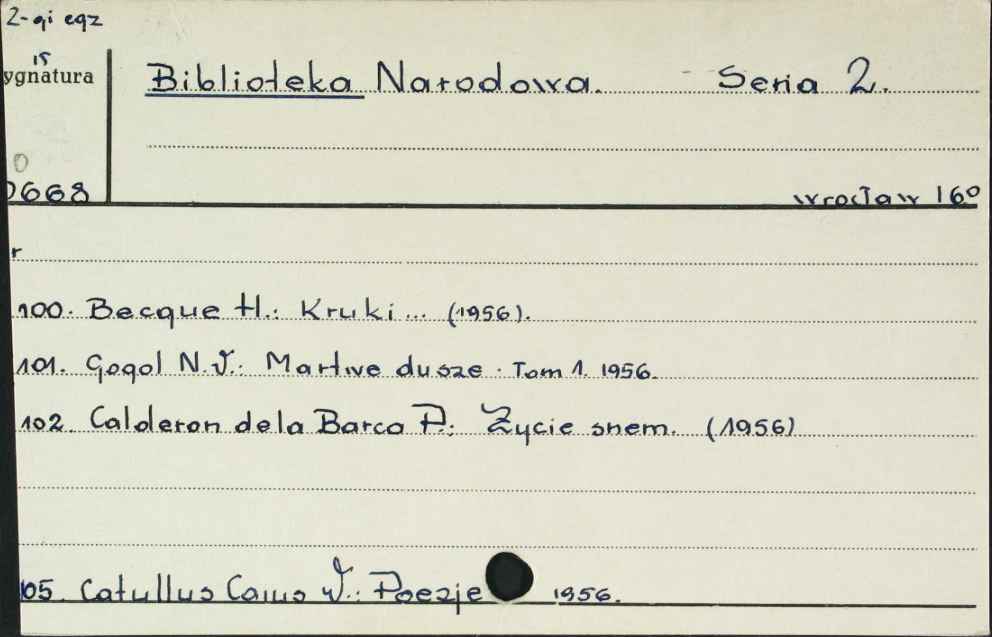 2-gi egz
15
ygnatura
Biblioteka Narodowa. - Seria 2.
0
0668
Wrocław 16°
r
100. Becque H.: Kruki... (1956).
101. Gogol N.W.: Martwe dusze. Tom 1. 1956.
102. Calderon de la Barca P.: Życie snem. (1956)
105. Catullus Caius W.: Poezje 1956.